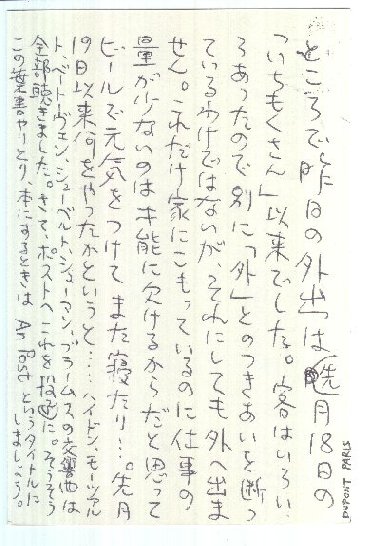 ところで昨日の外出は先月18日の
「いちもくさん」以来でした。客はいろい
ろあったので別に「外」とのつきあいを断っ
ているわけではないが、それにしても外へ出ま
せん。これだけ家にこもっているのに仕事の
量が少ないのは才能に欠けるからだと思って
ビールで元気をつけてまた寝たり…。先月
19日以来何をやったかというと……ハイドン、モーツァル
ト、ベートーヴェン、シューベルト、シューマン、ブラームスの交響曲は
全部聴きました。さて、ポストへこれを投函に。そうそう
この葉書やりとり、本にするときは Per Post というタイトルに
しましょう。
DUPONT PARIS